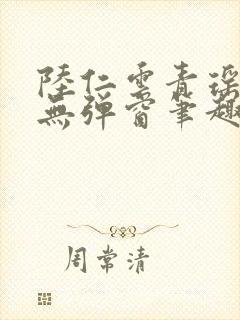 陸仁雲青瑶
無彈窗筆趣
周常清